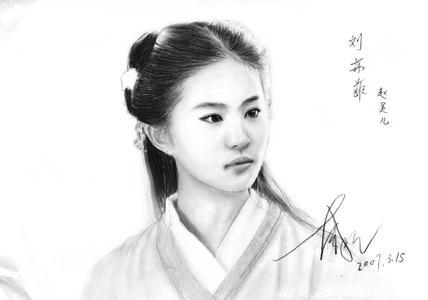 刘亦菲
赵灵儿
2007.3.15